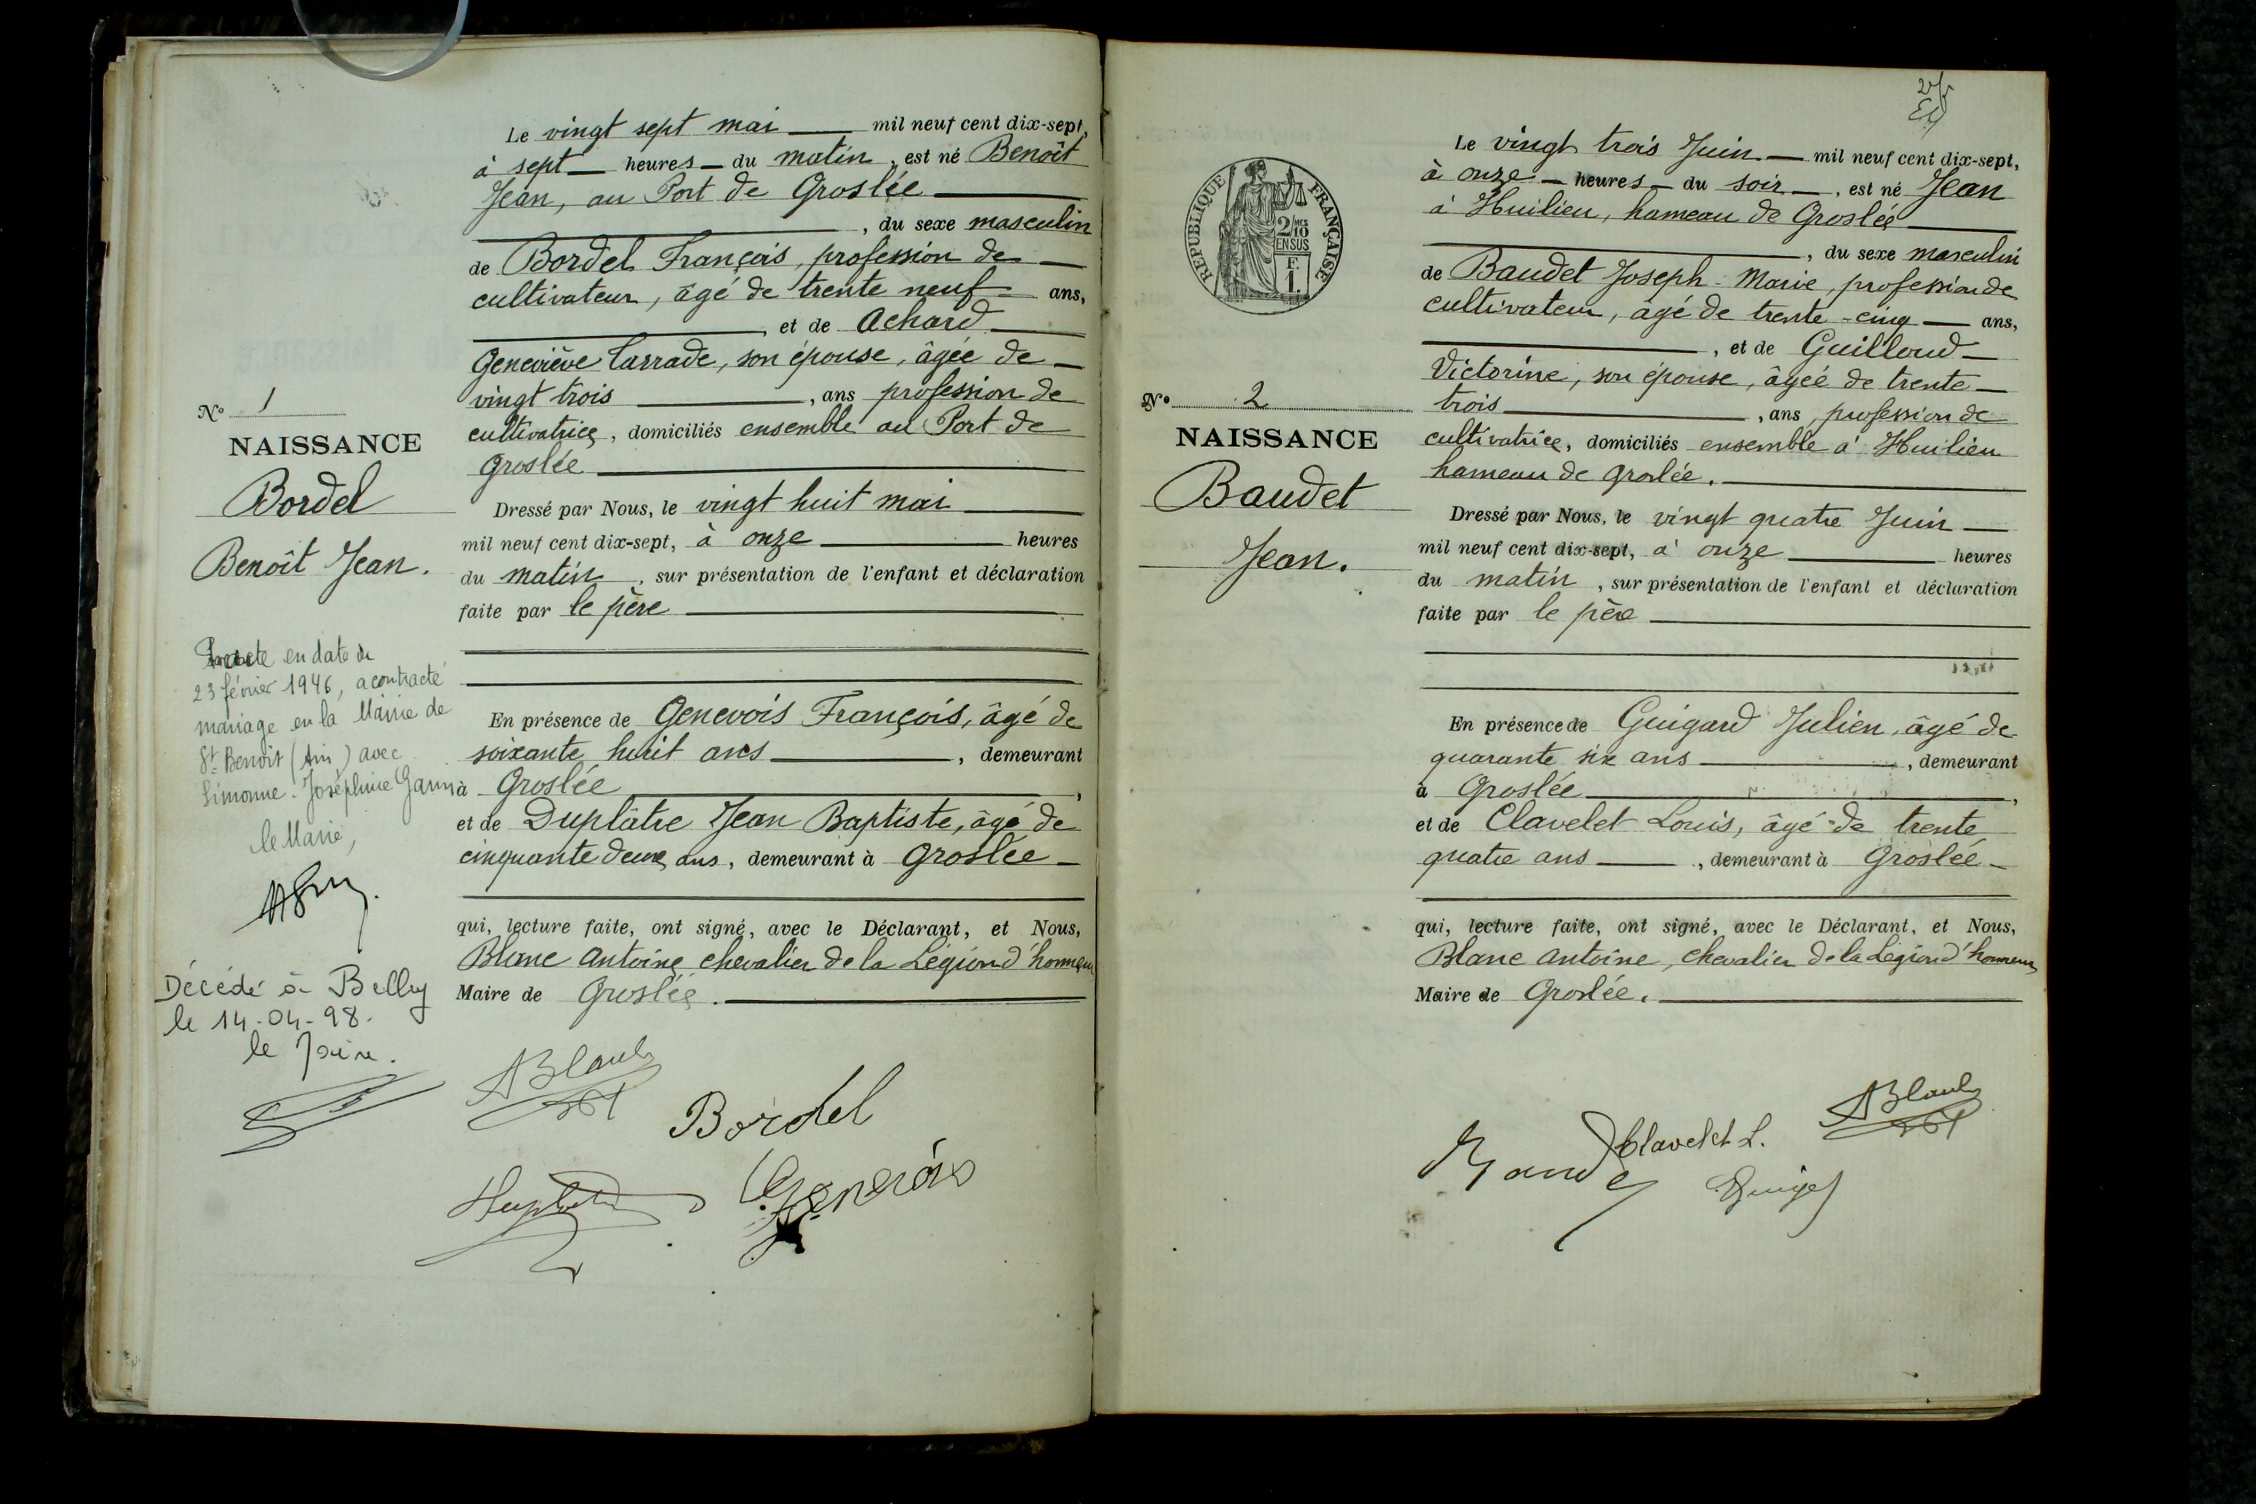 Le vingt sept mai mil neuf cent dix-sept,
à sept heures du matin, est né Benoît
Jean, au Port de Groslée
, du sexe masculin
de Bordel François, profession de
cultivateur, âgé de trente neuf ans,
, et de Achard
Geneviève Larrade, son épouse, âgée de
vingt trois, ans profession de
cultivatrice, domiciliés ensemble au Port de
Groslée
Nº 1
NAISSANCE
Bordel
Benoît Jean.
Dressé par Nous, le vingt huit mai
mil neuf cent dix-sept, à onze heures
du matin, sur présentation de l'enfant et déclaration
faite par le père
en date du
23 février 1946, a contracté
mariage en la Mairie de
St Benoit (Ain) avec
Simonne-Joséphine
le Maire,
Décédé à Belley
le 14-04-98.
le Maire.
En présence de Genevois François, âgé de
soixante huit ans, demeurant
à Groslée,
et de Duplâtre Jean Baptiste, âgé de
cinquante deux ans, demeurant à Groslée
qui, lecture faite, ont signé, avec le Déclarant, et Nous,
Blanc Antoine chevalier de la Légion d'honneur
Maire de Groslée.
ABlanc
Bordel
Genevois
REPUBLIQUE FRANÇAISE
2/10
EN SUS
F.
1.
Le vingt trois Juin mil neuf cent dix-sept,
à onze heures du soir, est né Jean
à Huilieu, hameau de Groslée
, du sexe masculin
de Baudet Joseph-Marie, profession de
cultivateur, âgé de trente-cinq ans,
, et de Guilloud
Victorine, son épouse, âgée de trente
trois, ans profession de
cultivatrice, domiciliés ensemble à Huilieu
hameau de Groslée.
Nº 2
NAISSANCE
Baudet
Jean.
Dressé par Nous, le vingt quatre Juin
mil neuf cent dix-sept, à onze heures
du matin, sur présentation de l'enfant et déclaration
faite par le père
En présence de Guigard Julien, âgé de
quarante six ans, demeurant
à Groslée,
et de Clavelet Louis, âgé de trente
quatre ans, demeurant à Groslée
qui, lecture faite, ont signé, avec le Déclarant, et Nous,
Blanc Antoine, chevalier de la Légion d'honneur
Maire de Groslée.
ABlanc
Clavelet L.